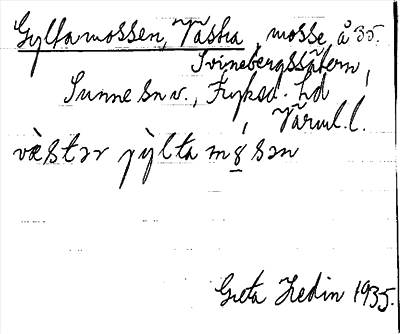 Gyltamossen, Västra, mosse, å 35.
Svinebergssätern,
Sunne sn v., Fryksd. hd
Värml. l.
vàstər jỳlta mɷsən
Greta Hedin 1935.